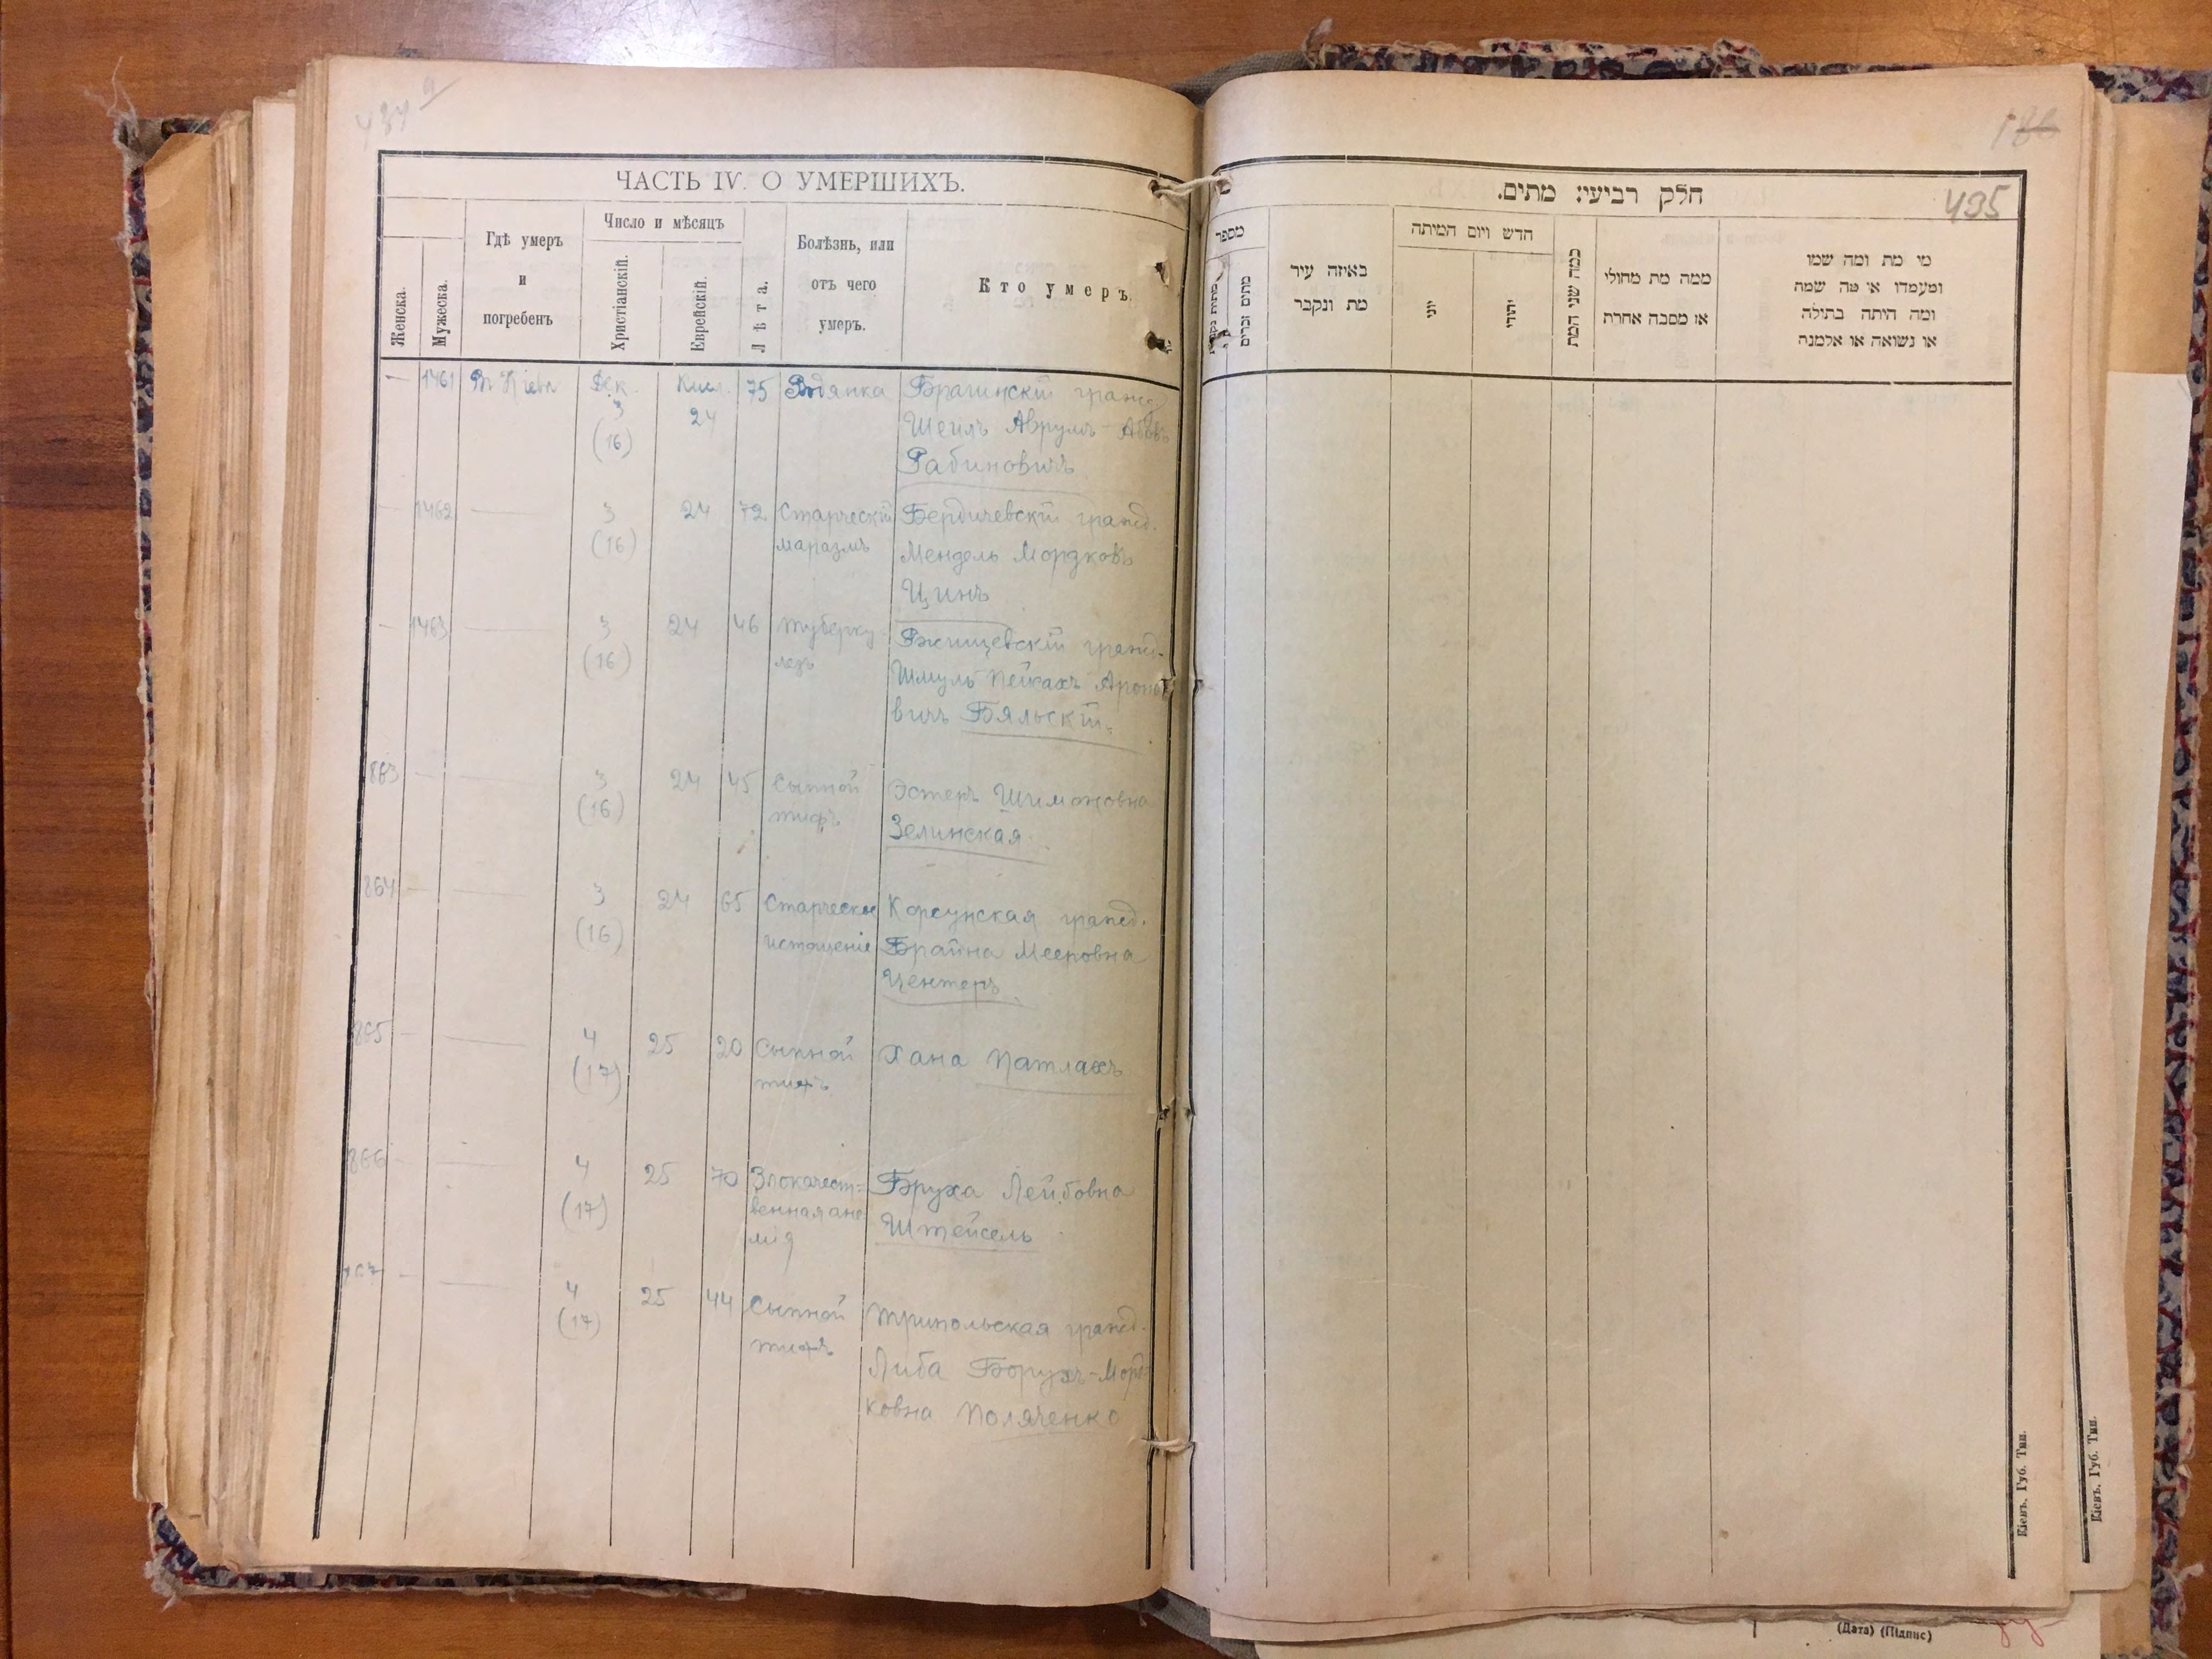 434 а
ЧАСТЬ IV. О УМЕРШИХЪ.
Женска.
Мужеска.
Гдѣ умеръ
и
погребенъ
Число и мѣсяцъ
Христіанскій.
Еврейскій.
Лѣта.
Болѣзнь, или
отъ чего
умеръ.
Кто умеръ.
— 1461 Въ Кіевѣ Дек. Кисл. 75 Водянка Брагинскій гражд.
3 24 Шеилъ Аврумъ-Абовъ
(16) Рабиновичъ
— 1462 — 3 24 72 Старческій Бердичевскій гражд.
(16) маразмъ Мендель Мордковъ
Цинъ
— 1463 — 3 24 46 Туберку- Ржищевскій гражд.
(16) лезъ Шмуль Пейсахъ Ароно-
вичъ Бяльскій.
863 — — 3 24 45 Сыпной Эстеръ Шимоновна
(16) тифъ Зелинская.
864 — — 3 24 65 Старческое Корсунская гражд.
(16) истощеніе Брайна Мееровна
Центеръ
865 — — 4 25 20 Сыпной Хана Патлахъ
(17) тифъ
866 — — 4 25 70 Злокачест- Бруха Лейбовна
(17) венная ане- Штейсель
мія
867 — — 4 25 44 Сыпной Трипольская гражд.
(17) тифъ Либа Борухъ-Морд-
ковна Поляченко
186
495
חלק רביעי: מתים.
מספר
מתים זכרים
באיזה עיר
מת ונקבר
חדש ויום המיתה
יוני
יהודי
כמה שני המת
ממה מת מחולי
או מסבה אחרת
מי מת ומה שמו
ומעמדו או מה שמה
ומה היתה בתולה
או נשואה או אלמנה
Кіевъ. Губ. Тип.
Кіевъ. Губ. Тип.
(Дата) (Підпис)